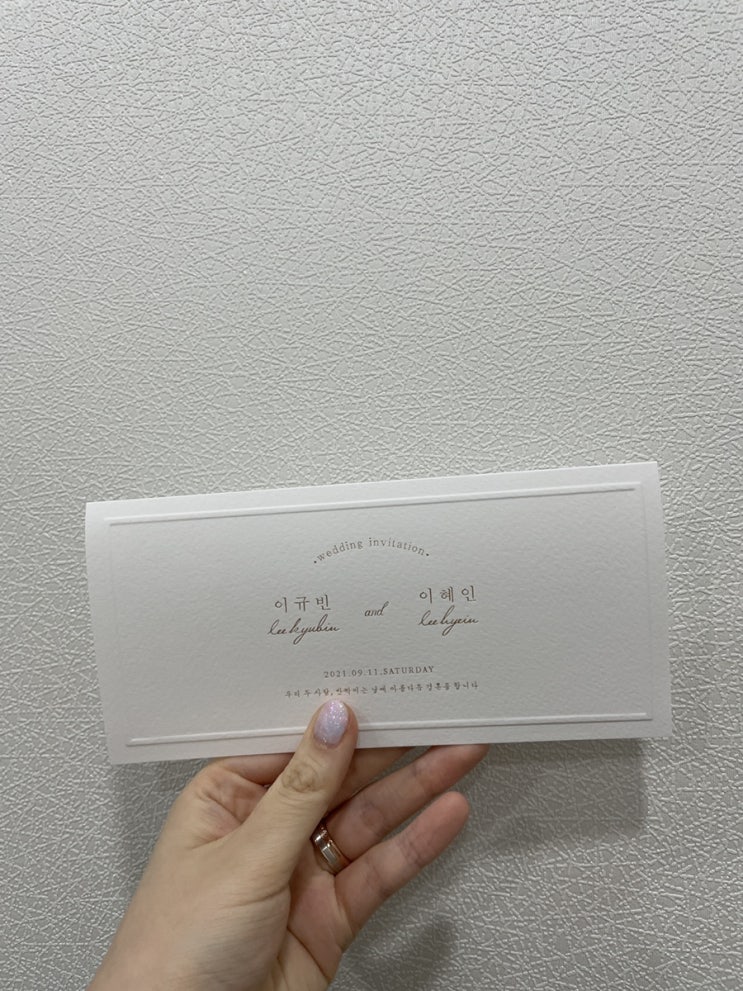 ·wedding invitation·
이규빈 and 이혜인
lee kyubin lee hyein
2021.09.11.SATURDAY
우리 두 사람, 반짝이는 날에 아름다운 결혼을 합니다